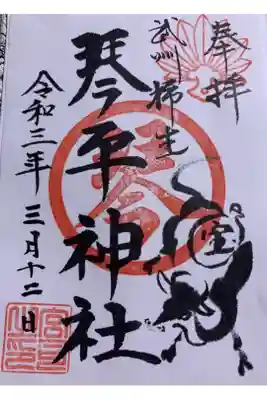 奉拝
武州柿生
琴平神社
令和三年三月十二日